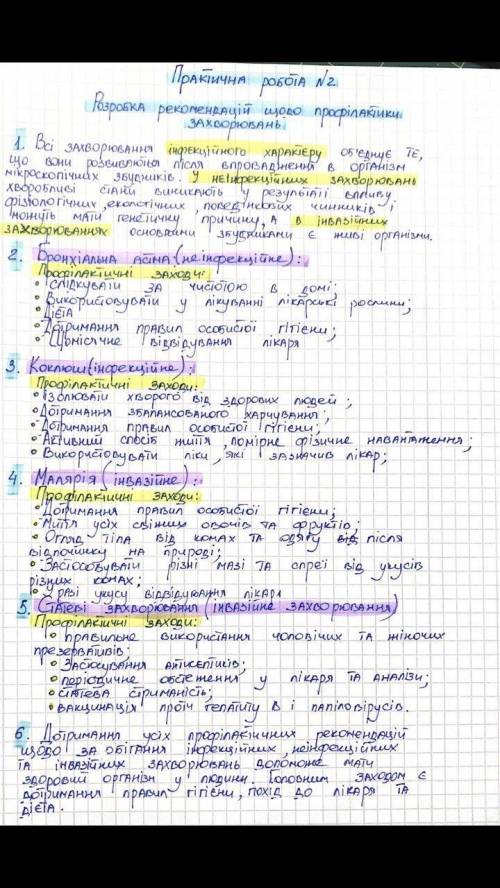 Практична робота №2
Розробка рекомендацій щодо профілактики
захворювань.
1. Всі захворювання інфекційного характеру об'єднує те,
що вони розвиваються після впровадження в організм
мікроскопічних збудників. У неінфекційних захворювань
хворобливі стани виникають у результаті впливу
фізіологічних, екологічних, поведінкових чинників і
можуть мати генетичну причину, а в інвазійних
захворюваннях основними збудниками є живі організми.
2. Бронхіальна астма (неінфекційне):
Профілактичні заходи:
• Слідкувати за чистотою в домі;
• Використовувати у лікуванні лікарські рослини;
• Дієта
• Дотримання правил особистої гігієни;
• Щомісячне відвідування лікаря
3. Коклюш (інфекційне):
Профілактичні заходи:
• Ізолювати хворого від здорових людей;
• Дотримання збалансованого харчування;
• Дотримання правил особистої гігієни;
• Активний спосіб життя, помірне фізичне навантаження;
• Використовувати ліки, які зазначив лікар;
4. Малярія (інвазійне):
Профілактичні заходи:
• Дотримання правил особистої гігієни;
• Миття усіх свіжих овочів та фруктів;
• Огляд тіла від комах та одягу від після
відпочинку на природі;
• Застосовувати різні мазі та спреї від укусів
різних комах;
• У разі укусу відвідування лікаря
5. Статеві захворювання (інвазійне захворювання)
Профілактичні заходи:
• правильне використання чоловічих та жіночих
презервативів;
• Застосування антисептиків;
• періодичне обстеження у лікаря та аналізи;
• статева стриманість;
• вакцинація проти гепатиту В і папіловірусів.
6. Дотримання усіх профілактичних рекомендацій
щодо запобігання інфекційних, неінфекційних
та інвазійних захворювань допоможе мати
здоровий організм у людини. Головним заходом є
дотримання правил гігієни, похід до лікаря та
дієта.